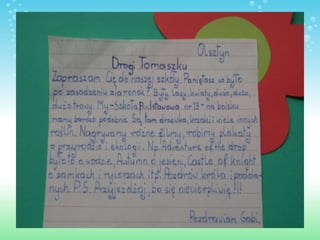 Olsztyn
Drogi Tomaszku
Zapraszam Cię do naszej szkoły. Pamiętasz co było
po zasadzeniu ziarenek? Były lasy, kwiaty, dużo, dużo,
dużo trawy. My-Szkoła Podstawowa nr 13-na boisku
mamy bardzo podobnie. Są tam drzewka, krzaki i wiele innych
roślin. Nagrywamy różne filmy, robimy plakaty
o przyrodzie i ekologii. Np. Adventure of the drop
było to o wodzie, Autumn o jesieni, Castle of knight
o zamkach i rycerzach itp. Pozdrów króla i podda-
nych. P.S. Przyjeżdżaj, bo się niecierpliwię!!!
Pozdrawiam Gabi,